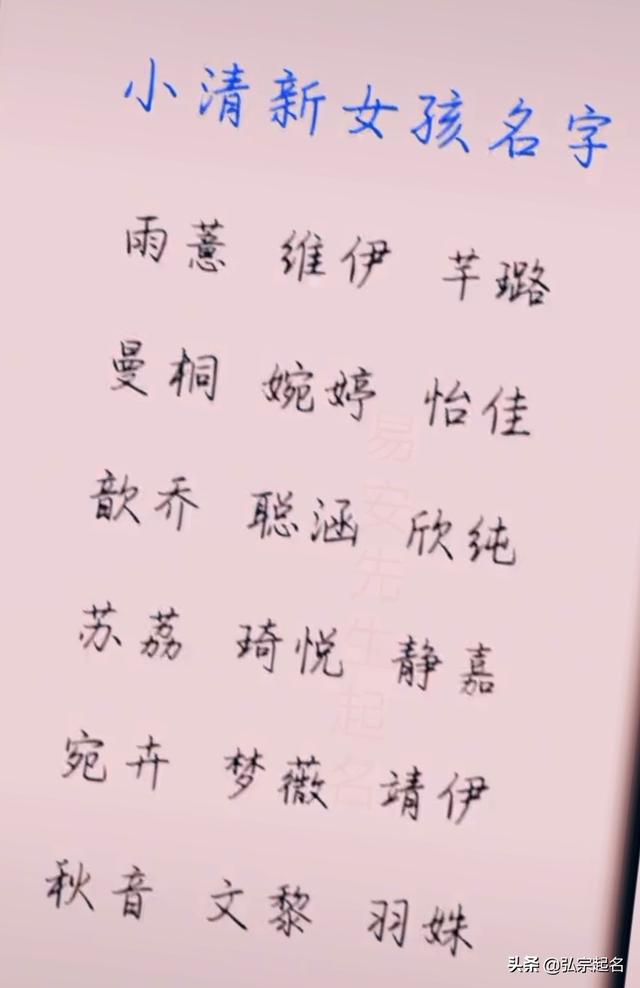 小清新女孩名字
雨薏 维伊 芊璐
曼桐 婉婷 怡佳
歆乔 聪涵 欣纯
苏荔 琦悦 静嘉
宛卉 梦薇 靖伊
秋音 文黎 羽姝
易安先生起名
头条 @弘宗起名